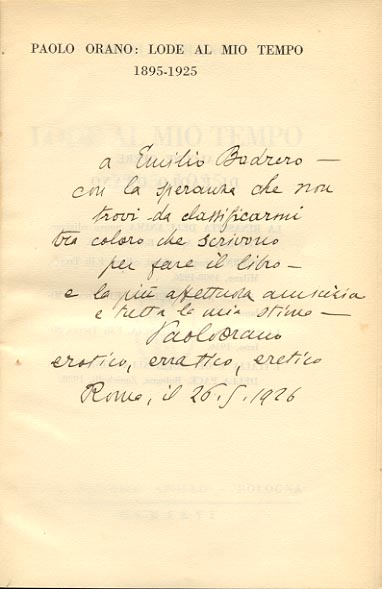 PAOLO ORANO: LODE AL MIO TEMPO
1895-1925
a Emilio Bodrero —
con la speranza che non
trovi da classificarmi
tra coloro che scrivono
per fare il libro —
e la più affettuosa amicizia
e tutta la mia stima —
Paolo Orano
erotico, erratico, eretico
Roma, il 26.5.1926